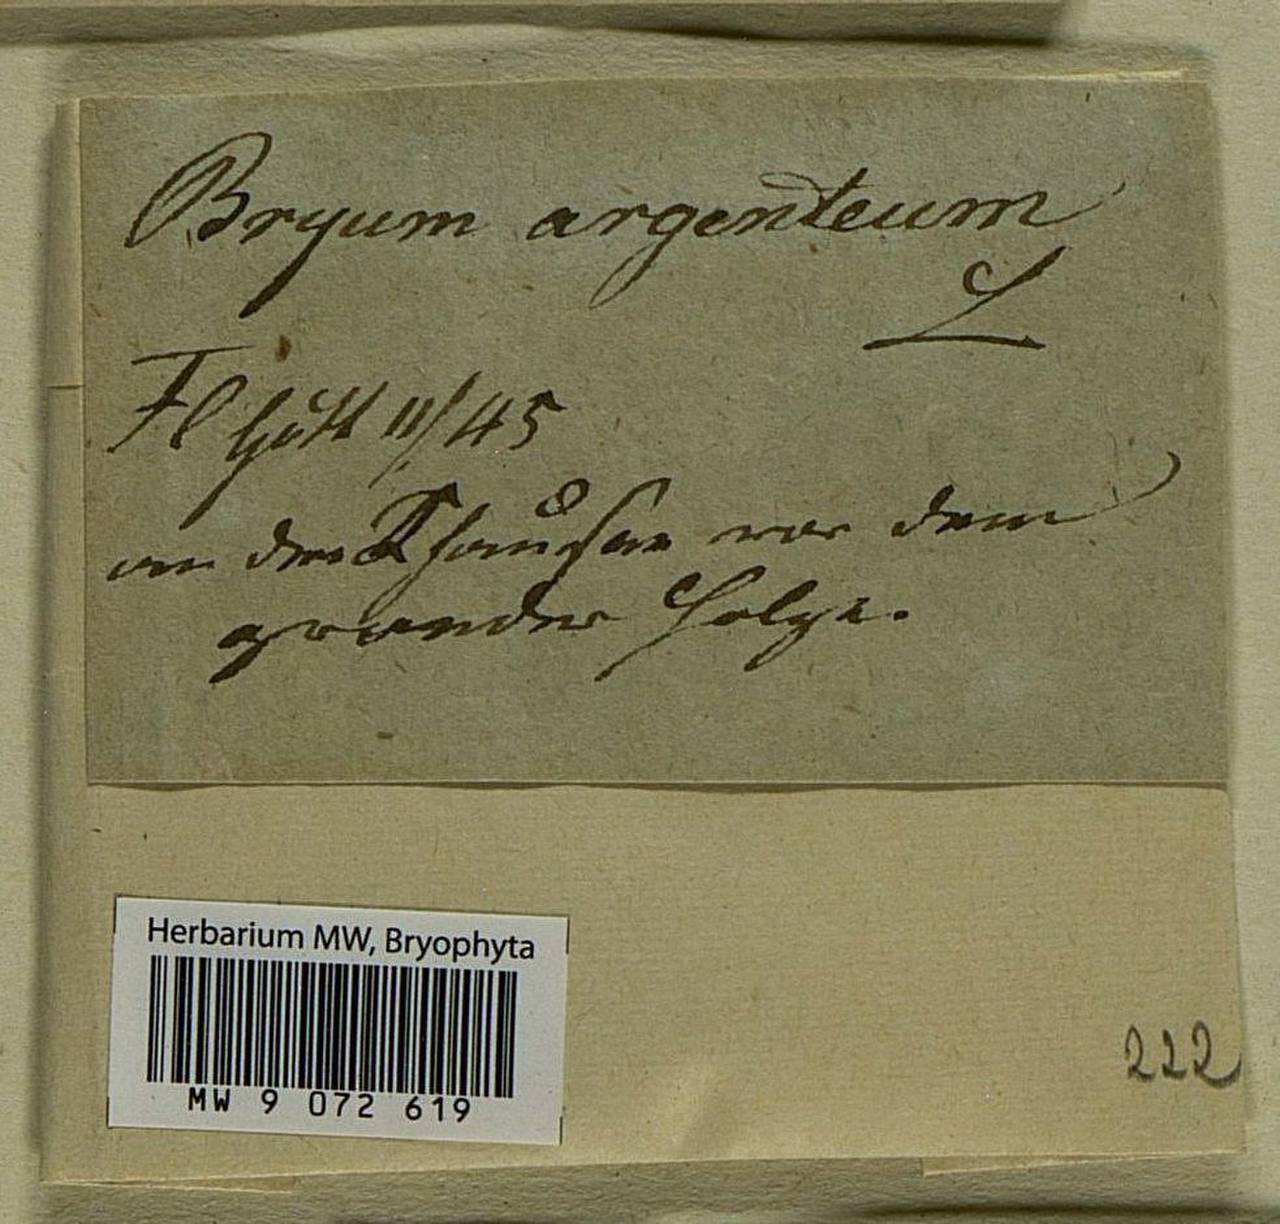 Bryum argenteum
L
Fl Gött 11/45
an der Chaussee vor dem
groander Holze.
Herbarium MW, Bryophyta
MW 9 072 619
222